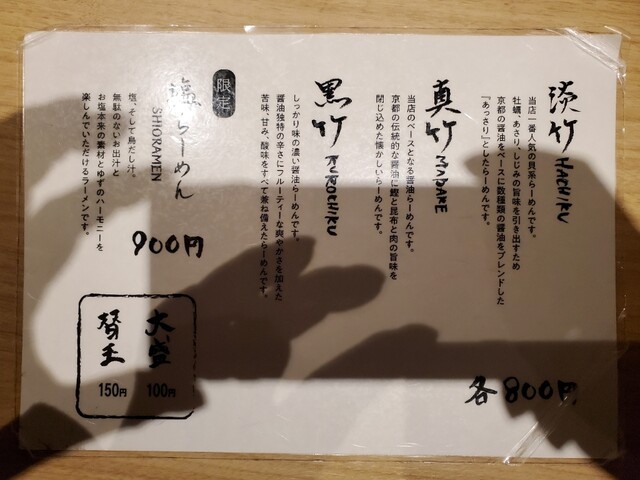 淡竹 HACHIKU
当店一番人気の貝系らーめんです。
牡蠣、あさり、しじみの旨味を引き出すため
京都の醤油をベースに数種類の醤油をブレンドした
『あっさり』としたらーめんです。
真竹 MADAKE
当店のベースとなる醤油らーめんです。
京都の伝統的な醤油に鰹と昆布と肉の旨味を
閉じ込めた懐かしいらーめんです。
黒竹 KUROCHIKU
しっかり味の濃い醤油らーめんです。
醤油独特の辛さにフルーティーな爽やかさを加えた
苦味、甘み、酸味をすべて兼ね備えたらーめんです。
各800円
限定
塩らーめん
SHIORAMEN
塩、そして鳥だし汁。
無駄のないお出汁と
お塩本来の素材とゆずのハーモニーを
楽しんでいただけるラーメンです。
900円
大盛
100円
替玉
150円